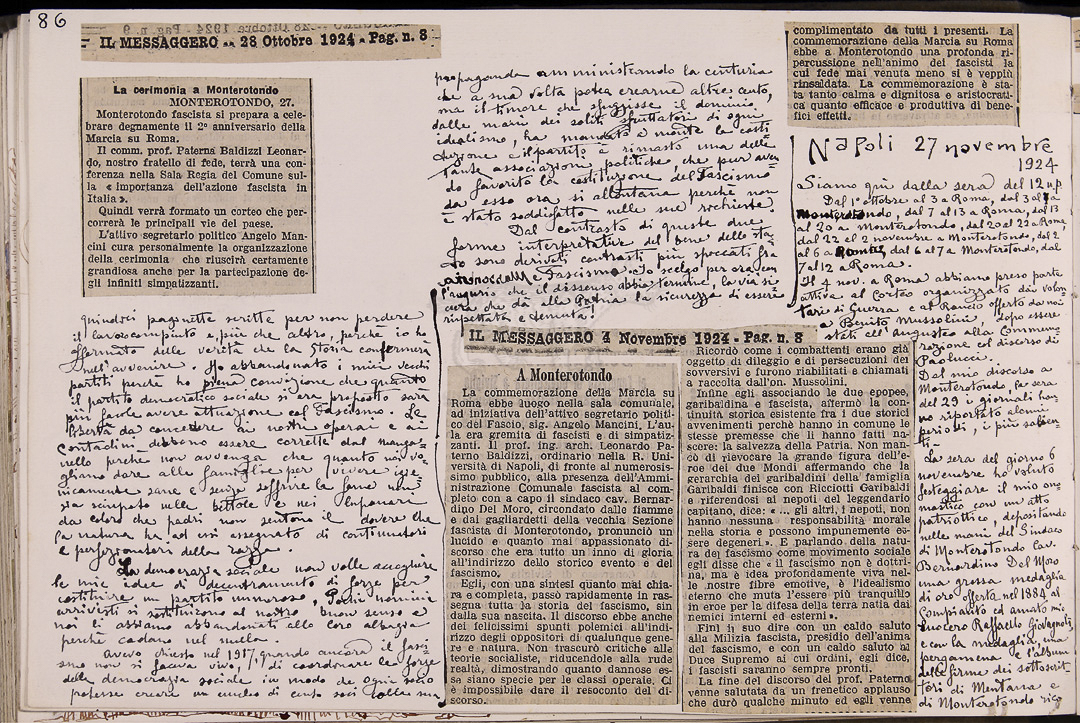 86
IL MESSAGGERO - 28 Ottobre 1924 - Pag. n. 8
La cerimonia a Monterotondo
MONTEROTONDO, 27.
Monterotondo fascista si prepara a cele-
brare degnamente il 2° anniversario della
Marcia su Roma.
Il comm. prof. Paterna Baldizzi Leonar-
do, nostro fratello di fede, terrà una con-
ferenza nella Sala Regia del Comune sul-
la « importanza dell'azione fascista in
Italia ».
Quindi verrà formato un corteo che per-
correrà le principali vie del paese.
L'attivo segretario politico Angelo Man-
cini cura personalmente la organizzazione
della cerimonia che riuscirà certamente
grandiosa anche per la partecipazione de-
gli infiniti simpatizzanti.
quindici paginette scritte per non perdere
il lavoro compiuto e, più che altro, perchè io ho
affermato delle verità che la Storia confermerà
nell'avvenire. Ho abbandonato i miei vecchi
partiti perchè ho piena convinzione che quanto
il partito democratico sociale si era proposto sarà
più facile avere attuazione col Fascismo. La
libertà da concedere ai nostri operai e ai
contadini debbono essere corrette dal manga-
nello perchè non avvenga che quanto noi vo-
gliamo dare alle famiglie per vivere igie
nicamente sane e senza soffrire la fame non
sia sciupato nelle bettole e nei lupanari
da coloro che padri non sentono il dovere che
la natura ha ad essi assegnato di continuatori
e perfezionatori della razza.
La democrazia sociale non volle accogliere
le mie idee di decentramento di forze per
costituire un partito numeroso. Pochi uomini
arrivisti si sostituirono al nostro buon senso e
noi li abbiamo abbandonati alla loro albagia
perchè cadano nel nulla.
Avevo chiesto nel 1917, quando ancora il fasci
smo non si faceva vivo, di coordinare le forze
della democrazia sociale in modo che ogni socio
potesse creare un nucleo di cento soci colla sua
propaganda amministrando la centuria
che a sua volta potea crearne altre cento,
ma il timore che sfuggisse il dominio
dalle mani dei soliti sfruttatori di ogni
idealismo, ha mandato a monte la costi
tuzione e il partito è rimasto una delle
tante associazioni politiche, che pur aven
do favorito la costituzione del Fascismo
da esso ora si allontana perchè non
è stato soddisfatto nelle sue richieste.
Dal contrasto di queste due
forme interpretative del bene dello sta-
to sono derivati contrasti più spiccati fra
e Fascismo. Io scelgo per ora con
l'augurio che il dissenso abbia termine, la via si
cura che dà alla Patria la sicurezza di essere
rispettata e temuta!
IL MESSAGGERO 4 Novembre 1924 - Pag. n. 8
A Monterotondo
La commemorazione della Marcia su
Roma ebbe luogo nella sala comunale,
ad iniziativa dell'attivo segretario politi-
co del Fascio, sig. Angelo Mancini. L'au-
la era gremita di fascisti e di simpatiz-
zanti. Il prof. ing. arch. Leonardo Pa-
terno Baldizzi, ordinario nella R. Uni-
versità di Napoli, di fronte al numerosis-
simo pubblico, alla presenza dell'Ammi-
nistrazione Comunale fascista al com-
pleto con a capo il sindaco cav. Bernar-
dino Del Moro, circondato dalle fiamme
e dai gagliardetti della vecchia Sezione
fascista di Monterotondo, pronunciò un
lucido e quanto mai appassionato di-
scorso che era tutto un inno di gloria
all'indirizzo dello storico evento e del
fascismo.
Egli, con una sintesi quanto mai chia-
ra e completa, passò rapidamente in ras-
segna tutta la storia del fascismo, sin
dalla sua nascita. Il discorso ebbe anche
dei felicissimi spunti polemici all'indi-
rizzo degli oppositori di qualunque gene-
re e natura. Non trascurò critiche alle
teorie socialiste, riducendole alla rude
realtà, dimostrando quanto dannose es-
se siano specie per le classi operaie. Ci
è impossibile dare il resoconto del di-
scorso.
Ricordò come i combattenti erano già
oggetto di dileggio e di persecuzioni dei
sovversivi e furono riabilitati e chiamati
a raccolta dall'on. Mussolini.
Infine egli associando le due epopee,
garibaldina e fascista, affermò la con-
tinuità storica esistente fra i due storici
avvenimenti perchè hanno in comune le
stesse premesse che li hanno fatti na-
scere: la salvezza della Patria. Non man-
cò di rievocare la grande figura dell'e-
roe dei due Mondi affermando che la
gerarchia dei garibaldini della famiglia
Garibaldi finisce con Ricciotti Garibaldi
e riferendosi ai nepoti del leggendario
capitano, dice: « ... gli altri, i nepoti, non
hanno nessuna responsabilità morale
nella storia e possono impunemente es-
sere degeneri ». E parlando della natu-
ra del fascismo come movimento sociale
egli disse che « il fascismo non è dottri-
na, ma è idea profondamente viva nel-
le nostre fibre emotive, è l'idealismo
eterno che muta l'essere più tranquillo
in eroe per la difesa della terra natia dai
nemici interni ed esterni ».
Finì il suo dire con un caldo saluto
alla Milizia fascista, presidio dell'anima
del fascismo, e con un caldo saluto al
Duce Supremo ai cui ordini, egli dice,
i fascisti saranno sempre pronti.
La fine del discorso del prof. Paterno
venne salutata da un frenetico applauso
che durò qualche minuto ed egli venne
complimentato da tutti i presenti. La
commemorazione della Marcia su Roma
ebbe a Monterotondo una profonda ri-
percussione nell'animo dei fascisti la
cui fede mai venuta meno si è veppiù
rinsaldata. La commemorazione è sta-
ta tanto calma e dignitosa e aristocrati-
ca quanto efficace e produttiva di bene-
fici effetti.
Napoli 27 novembre
1924
Siamo quì dalla sera del 12 u.p.
Dal 1° ottobre al 3 a Roma, dal 3 al 7 a
Monterotondo, dal 7 al 13 a Roma, dal 13
al 20 a Monterotondo, dal 20 al 22 a Roma,
dal 22 al 2 novembre a Monterotondo, dal 2
al 6 a Roma, dal 6 al 7 a Monterotondo, dal
7 al 12 a Roma.
Il 4 nov. a Roma abbiamo preso parte
attiva al Corteo organizzato dai volon
tari di Guerra e al Rancio offerto da noi
a Benito Mussolini, dopo essere
stati all'Augusteo alla Commemo
razione col discorso di
Paolucci.
Dal mio discorso a
Monterotondo, la sera
del 29 i giornali han
no riportato alcuni
periodi, i più salien
ti.
La sera del giorno 6
novembre ho voluto
festeggiare il mio ono
mastico con un atto
patriottico, depositando
nelle mani del Sindaco
di Monterotondo Cav.
Bernardino Del Moro
una grossa medaglia
di oro offerta nel 1884 al
Compianto ed amato mio
suocero Raffaello Giovagnoli,
e con la medaglia, una
pergamena e l'album
delle firme dei sottoscrit
tori di Mentana e
di Monterotondo rico